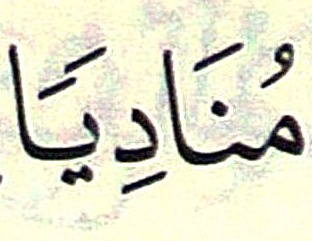 مُنَادِيًا